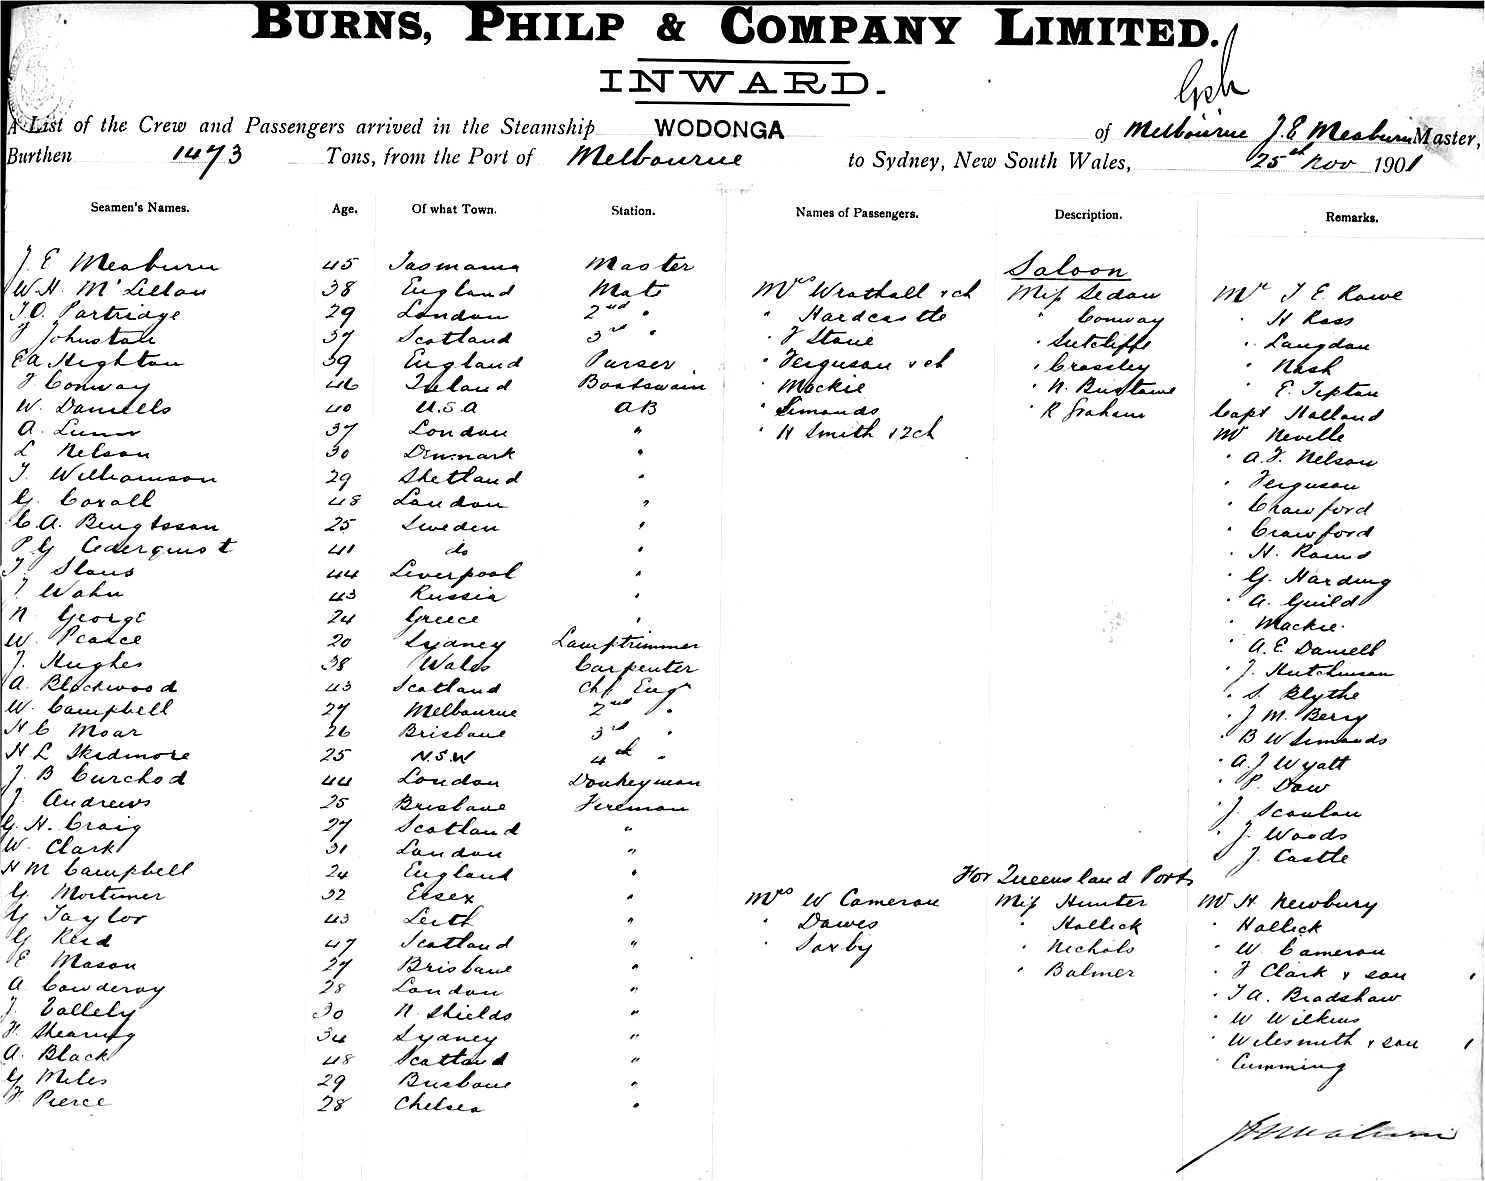 BURNS, PHILP & COMPANY LIMITED.
INWARD.
A List of the Crew and Passengers arrived in the Steamship WODONGA of Melbourne J. E Meaburn Master,
Burthen 1473 Tons, from the Port of Melbourne to Sydney, New South Wales, 25th Nov 1901
Seamen's Names. Age. Of what Town. Station. Names of Passengers. Description. Remarks.
Saloon
J. E Meaburn 45 Tasmania Master
W. H. McLellan 38 England Mate Mrs Wrathall & ch Miss Sedan Mr T E. Rowe
T. O. Partridge 29 London 2nd " " Hardcastle " Conway " H Ross
Johnston 37 Scotland 3rd " " F Stone " Sutcliffe " Langdon
E A Highton 39 England Purser " Ferguson & ch " Crossley " Nash
Conway 46 Ireland Boatswain " Mackie " N. Bustawe " E. Tipton
W. Daniels 40 U.S.A AB " Simonds " R Graham Capt Holland
A. Lunn 37 London " " H Smith & 2ch Mr Neville
L Nelson 30 Denmark " " A. F. Nelson
T. Williamson 29 Shetland " " Ferguson
G. Coxall 48 London " " Crawford
C. A. Bengtsson 25 Sweden " " Crawford
P G Cederquist 41 do " " H. Round
Slaus 44 Liverpool " " G. Harding
Wahn 43 Russia " " A. Guild
N George 24 Greece " " Mackie
W. Pearce 20 Sydney Lamptrimmer " A. E. Daniell
J. Hughes 38 Wales Carpenter " J. Hutchinson
A. Blackwood 43 Scotland Chf Engr " S. Blythe
W. Campbell 27 Melbourne 2nd " " J. M. Berry
H C Moar 26 Brisbane 3rd " " B W Simonds
H L Skidmore 25 N.S.W 4th " " A. J Wyatt
J. B Curchod 44 London Donkeyman " P. Dow
J. Andrews 25 Brisbane Fireman " J. Scanlan
G. H. Craig 27 Scotland " " J. Woods
W. Clark 31 London " " J. Castle
H M Campbell 24 England "
For Queensland Ports
G. Mortimer 32 Essex " Mrs W Cameron Miss Hunter Mr H. Newbury
G Taylor 43 Leith " " Dawes " Hollick " Hollick
G Reid 47 Scotland " " Saxby " Nichols " W. Cameron
E Mason 27 Brisbane " " Balmer " F Clark & son
A Cowderoy 28 London " " T A. Bradshaw
J. Vallely 30 N. Shields " " W Wilkins
F. Shearing 34 Sydney " " Wilesmith & son
A. Black 48 Scotland " " Cumming
G Miles 29 Brisbane "
F Pierce 28 Chelsea "
J E Meaburn